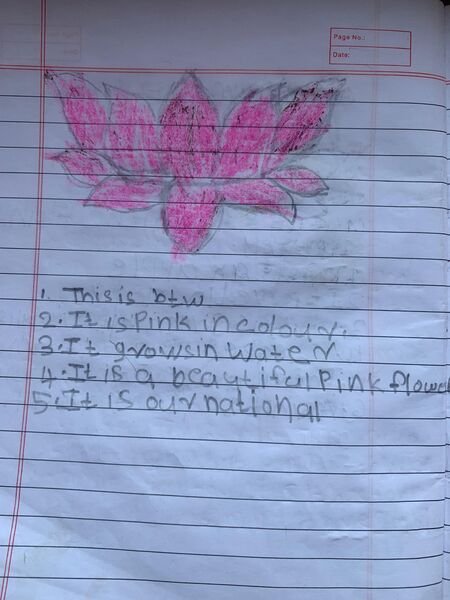 Page No.:
Date:
1. This is btw
2. It is Pink in colour.
3. It grows in Water
4. It is a beautiful Pink flower
5. It is our national